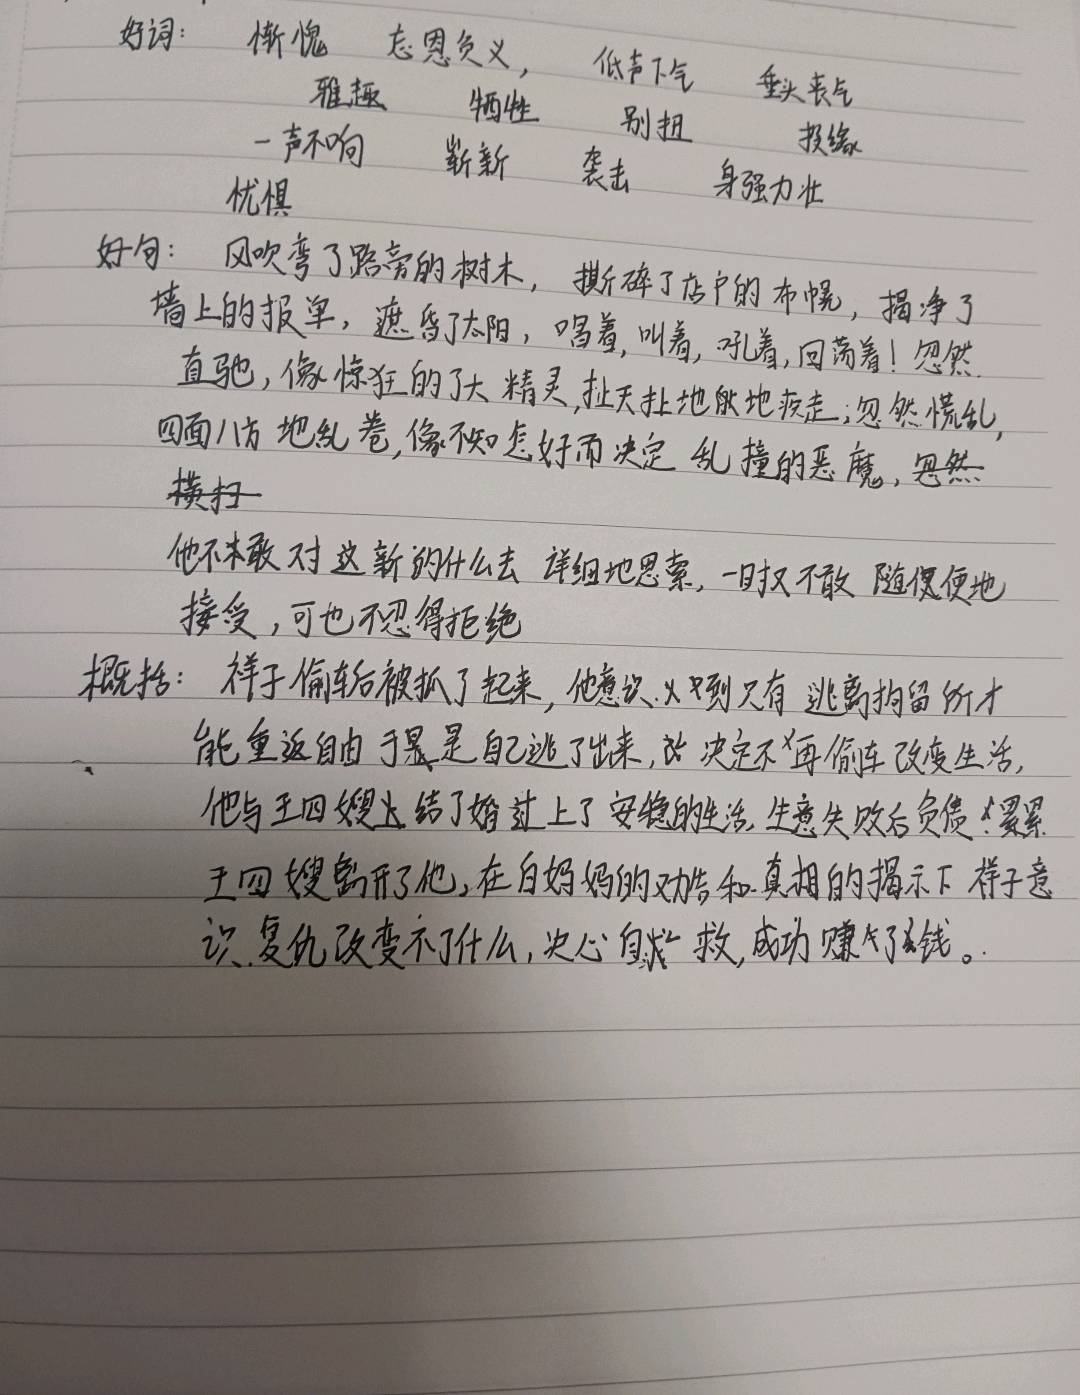 好词： 惭愧 忘恩负义， 低声下气 垂头丧气
雅趣 牺牲 别扭 投缘
一声不响 崭新 袭击 身强力壮
忧惧
好句： 风吹弯了路旁的树木，撕碎了店户的布幌，揭净了
墙上的报单，遮昏了太阳，唱着，叫着，吼着，回荡着！忽然
直驰，像惊狂的了大精灵，扯天扯地般地疾走；忽然慌乱，
四面八方地乱卷，像不知怎好而决定乱撞的恶魔，忽然
横扫
他不敢对这新的什么去详细地思索，一时又不敢随便便地
接受，可也不忍得拒绝
概括： 祥子偷车后被抓了起来，他意识到只有逃离拘留所才
能重返自由于是是自己逃了出来，决定不再偷车改变生活，
他与王四嫂结了婚过上了安稳的生活，生意失败后负债累累
王四嫂离开了他，在白妈妈的劝告和真相的揭示下祥子意
识复仇改变不了什么，决心自救，成功赚了钱。